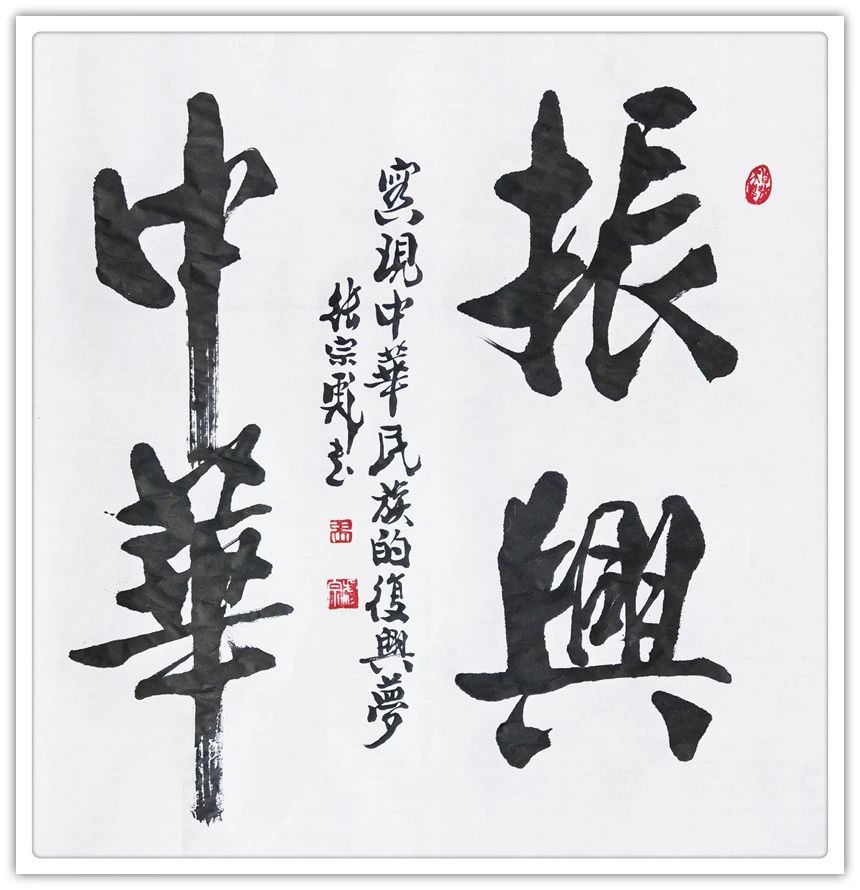 振興
中華
實現中華民族的復興夢
張宗書